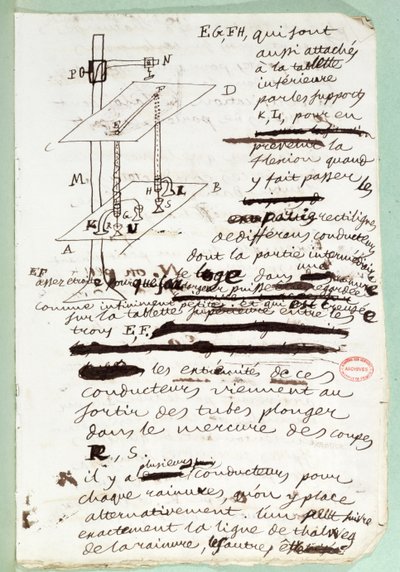 EG, FH, qui sont
aussi attachés
à la tablette
inférieure
par les supports
K, L, pour en
prévenir la
flexion quand
y fait passer les
parties rectilignes
de différens conducteurs
dont la partie intermédiaire
se loge dans une rainure
EF
assez étroite pour que sa largeur puisse être regardée
comme infiniment petite et qui est creusée
sur la tablette supérieure entre les
trous E, F,
les extrémités de ces
conducteurs viennent au
sortir des tubes plonger
dans le mercure des coupes
R, S.
il y a plusieurs conducteurs pour
chaque rainure, on y place
alternativement. l'un suivre
exactement la ligne de thalweg
de la rainure, les autres
P O N
D
C
E F
M
H L
B
K R G S
A
ARCHIVES